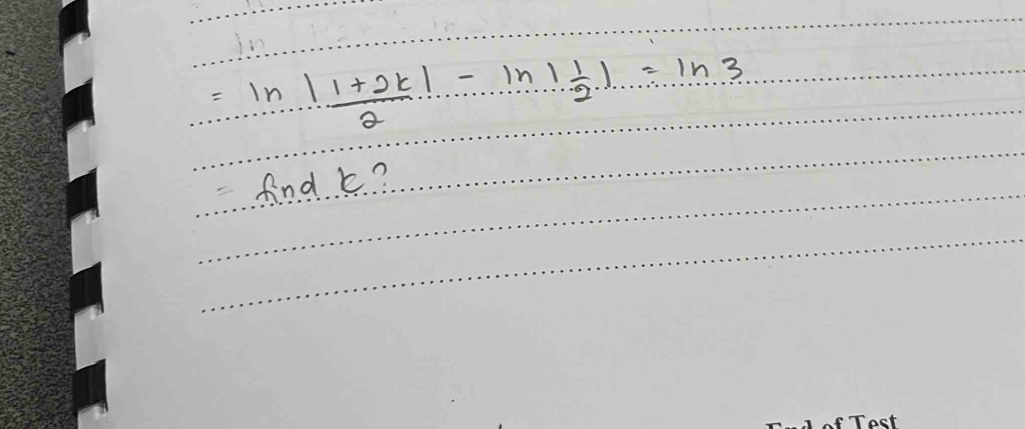 ln
= ln |1+2k/2| - ln |1/2| = ln 3
= find k?
End of Test